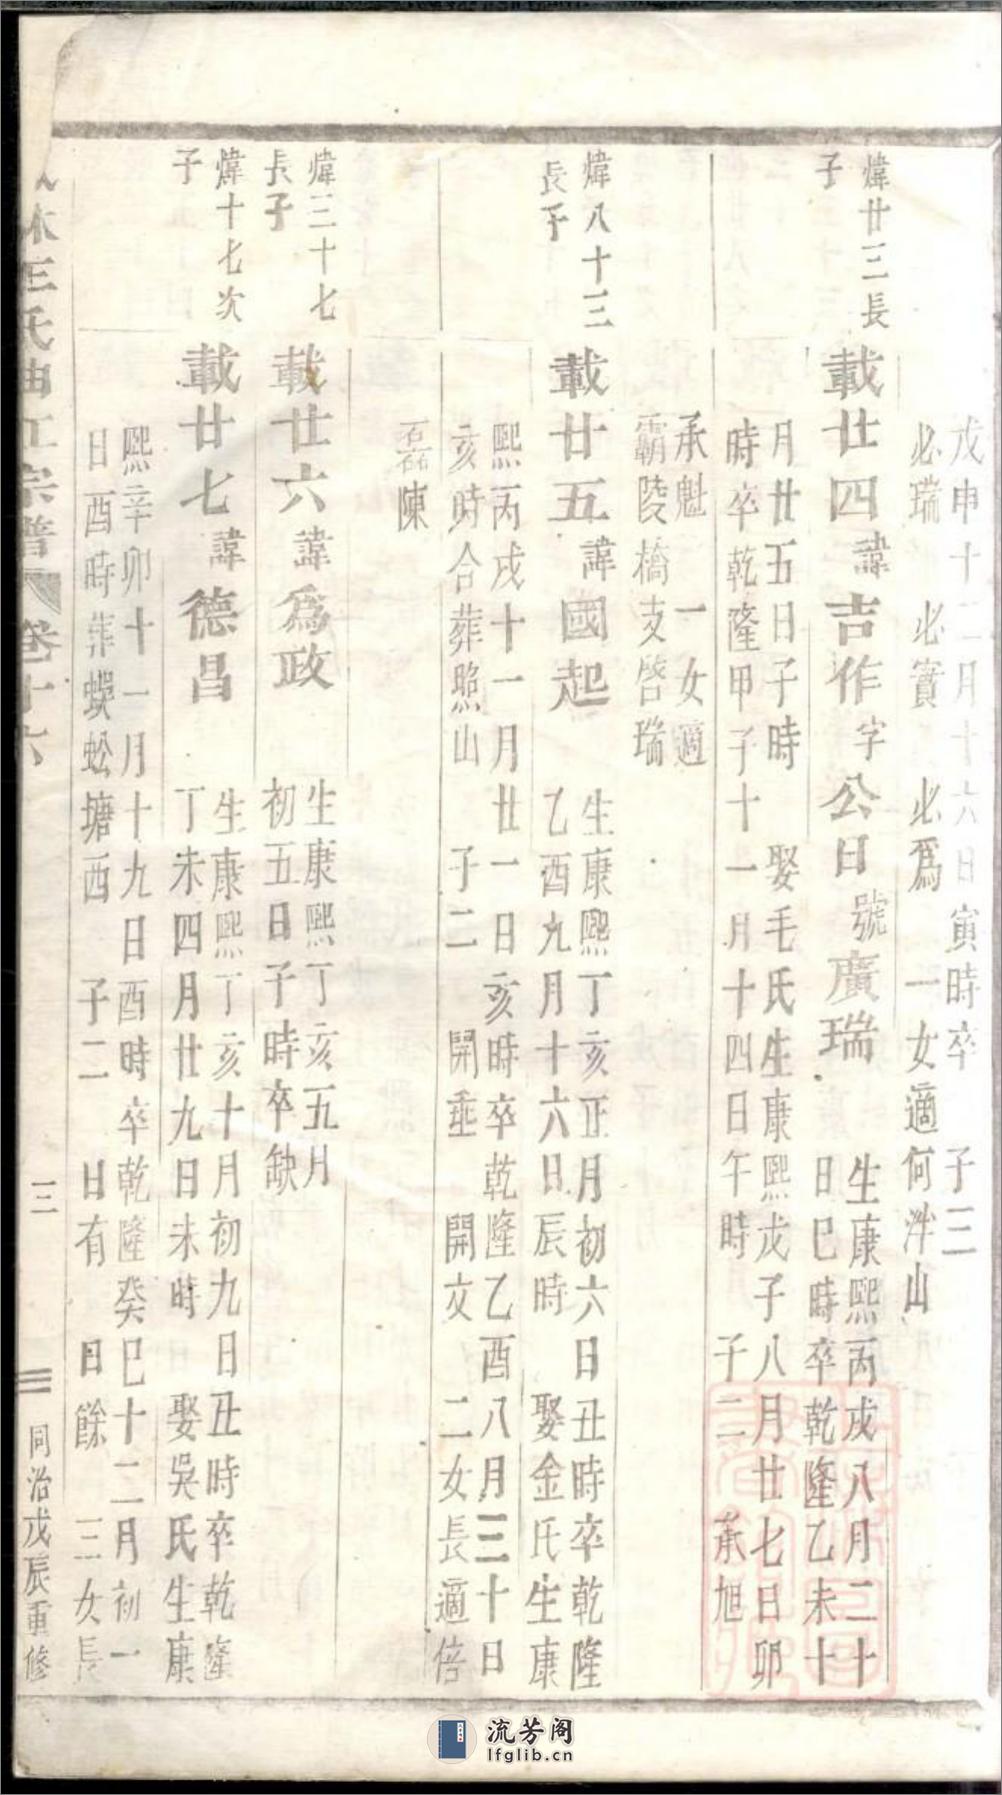 戊申十二月十六日寅時卒　子三
必瑞　必實　必為　一女適何泮山
煒廿三長
子
載廿四諱吉作字公日號廣瑞
生康熙丙戌八月二十
日巳時卒乾隆乙未十
月廿五日子時　娶毛氏生康熙戊子八月廿七日卯
時卒乾隆甲子十一月十四日午時　子二　承旭
承魁　一女適
霸陵橋支啓瑞
煒八十三
長子
載廿五諱國起
生康熙丁亥正月初六日丑時卒乾隆
乙酉九月十六日辰時　娶金氏生康
熙丙戌十一月廿一日亥時卒乾隆乙酉八月三十日
亥時合葬照山　子二　開垂　開文　二女長適倍
磊陳
煒三十七
長子
載廿六諱為政
生康熙丁亥五月
初五日子時卒缺
煒十七次
子
載廿七諱德昌
生康熙丁亥十月初九日丑時卒乾隆
丁未四月廿九日未時　娶吳氏生康
熙辛卯十一月十九日酉時卒乾隆癸巳十二月初一
日酉時葬蜈蚣塘西　子二　日有　日餘　三女長
林王氏 宗譜　卷十六　三　同治戊辰重修
流芳阁
lfglib.cn